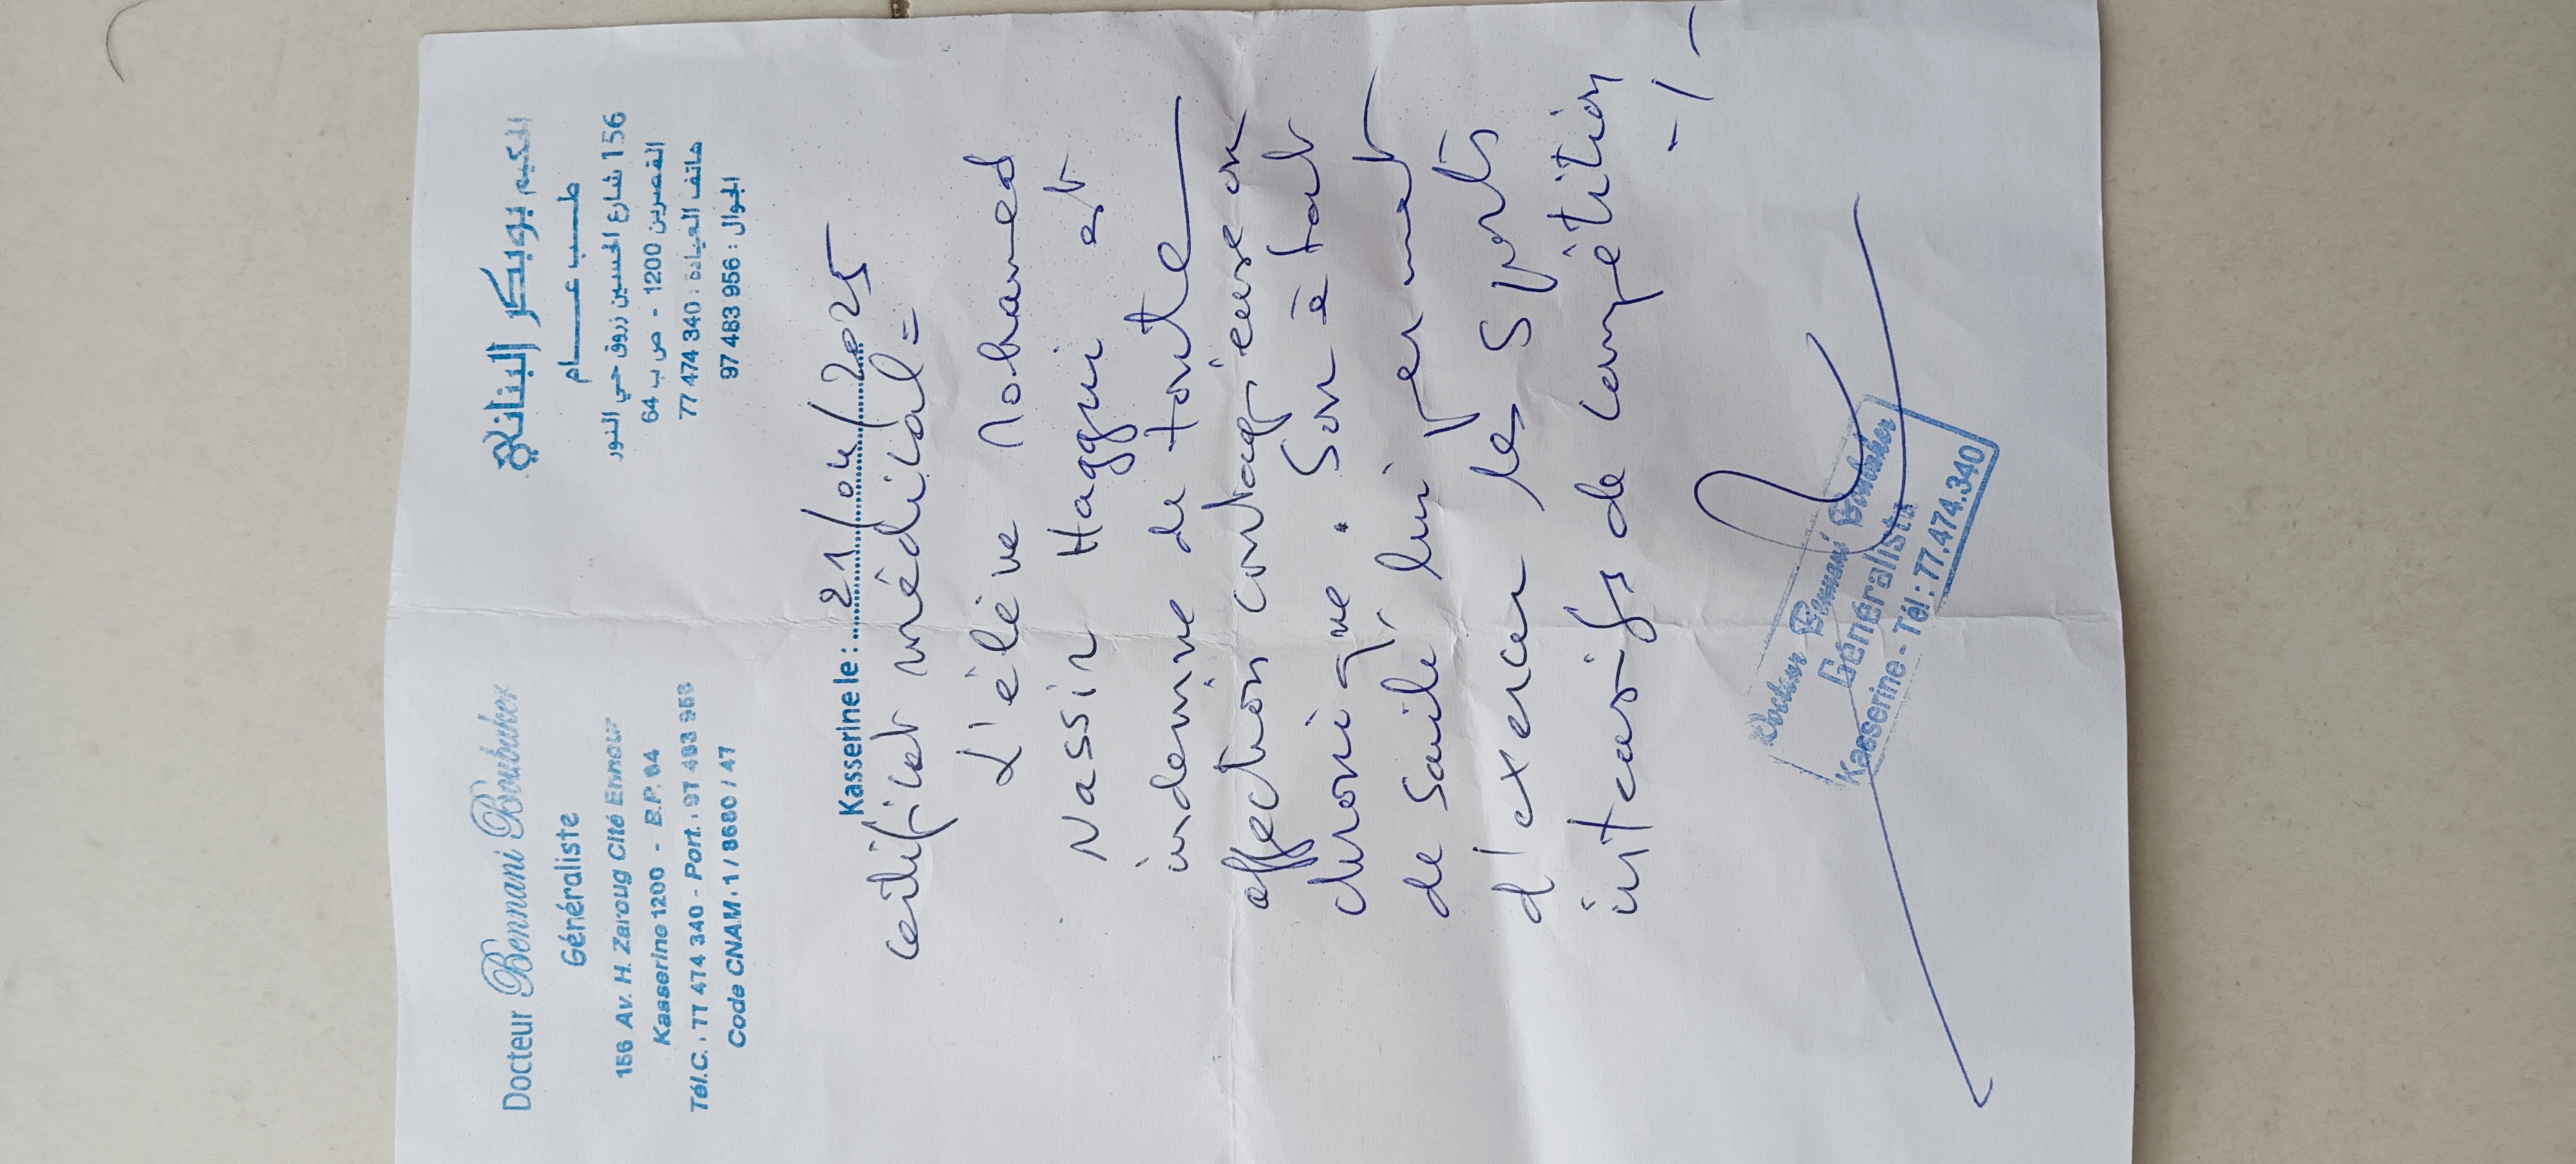 Docteur Bennani Boubaker
Généraliste
156 Av. H. Zaroug Cité Ennour
Kasserine 1200 - B.P. 64
Tél.C. : 77 474 340 - Port. : 97 483 956
Code CNAM : 1 / 8680 / 47
الحكيم بوبكر البناني
طـــب عـــــام
156 شارع الحسين زروق حي النور
القصرين 1200 - ص ب 64
هاتف العيادة : 77 474 340
الجوال : 97 483 956
Kasserine le : 21/04/2025
Certificat médical =
L'élève Mohamed
Nassir Haggui est
indemne de toute
affection contagieuse ou
chronique . Son état
de santé lui permet
d'exercer les sports
intensifs de compétition
-/-
Docteur Bennani Boubaker
Généraliste
Kasserine - Tél : 77.474.340